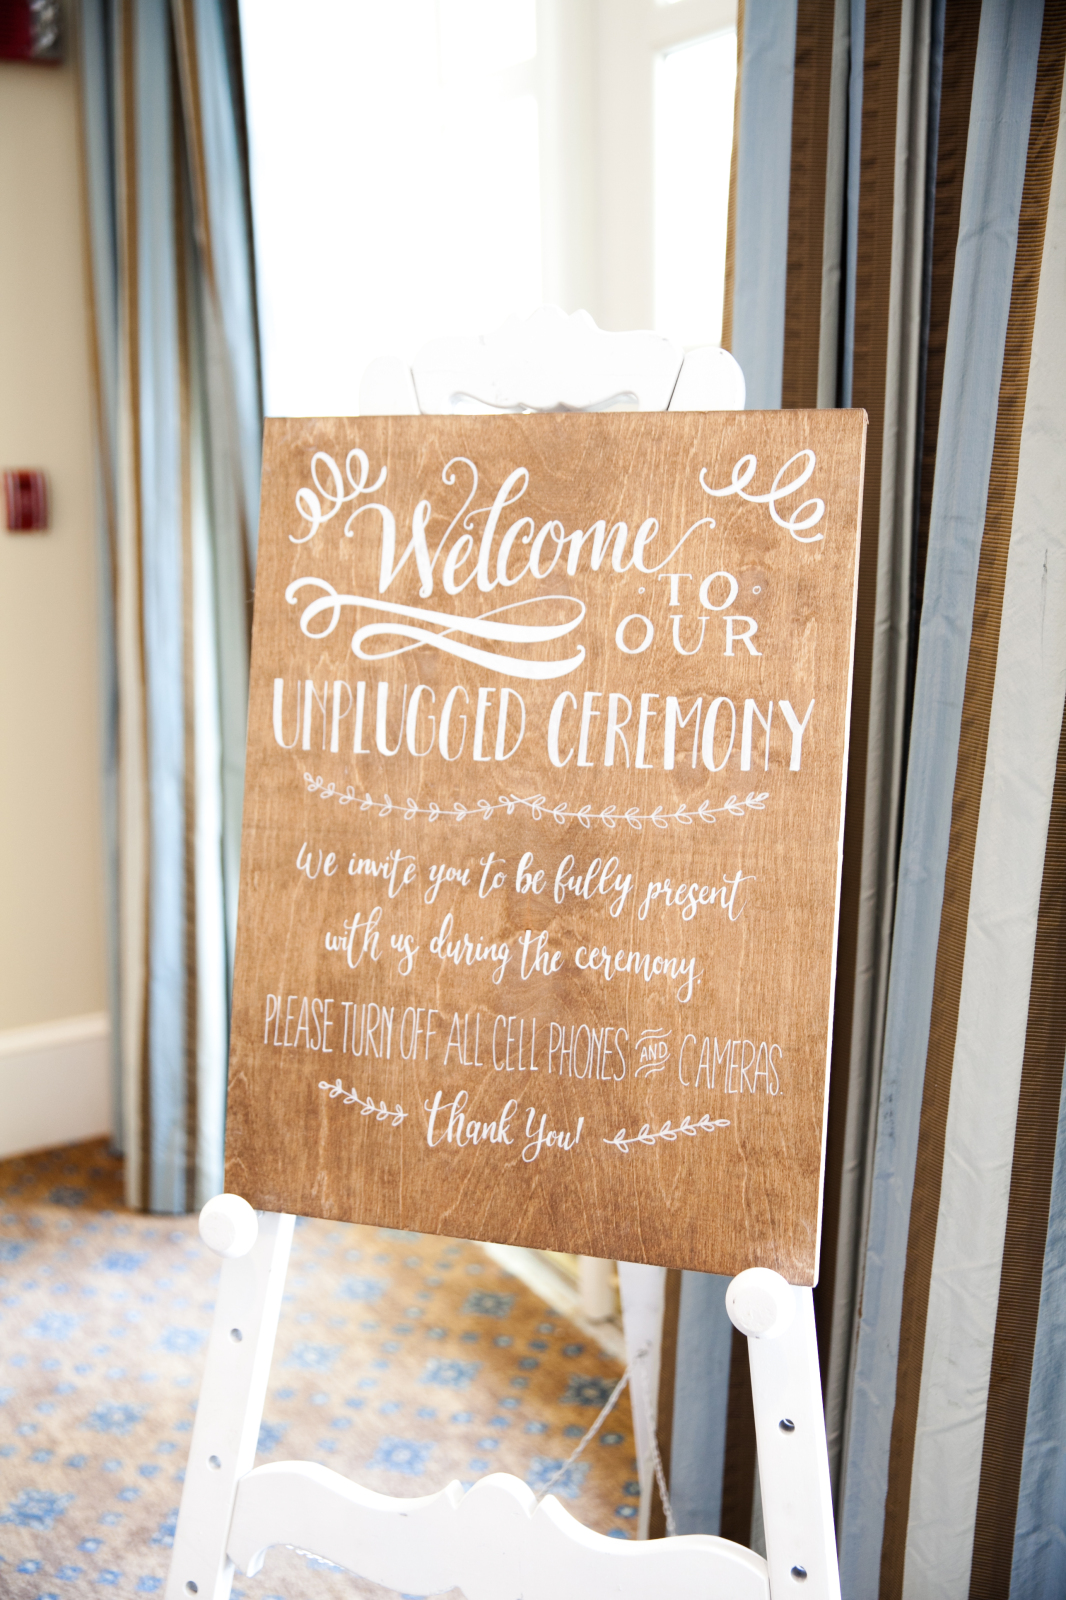 Welcome
TO
OUR
UNPLUGGED CEREMONY
We invite you to be fully present
with us during the ceremony.
PLEASE TURN OFF ALL CELL PHONES AND CAMERAS.
Thank You!